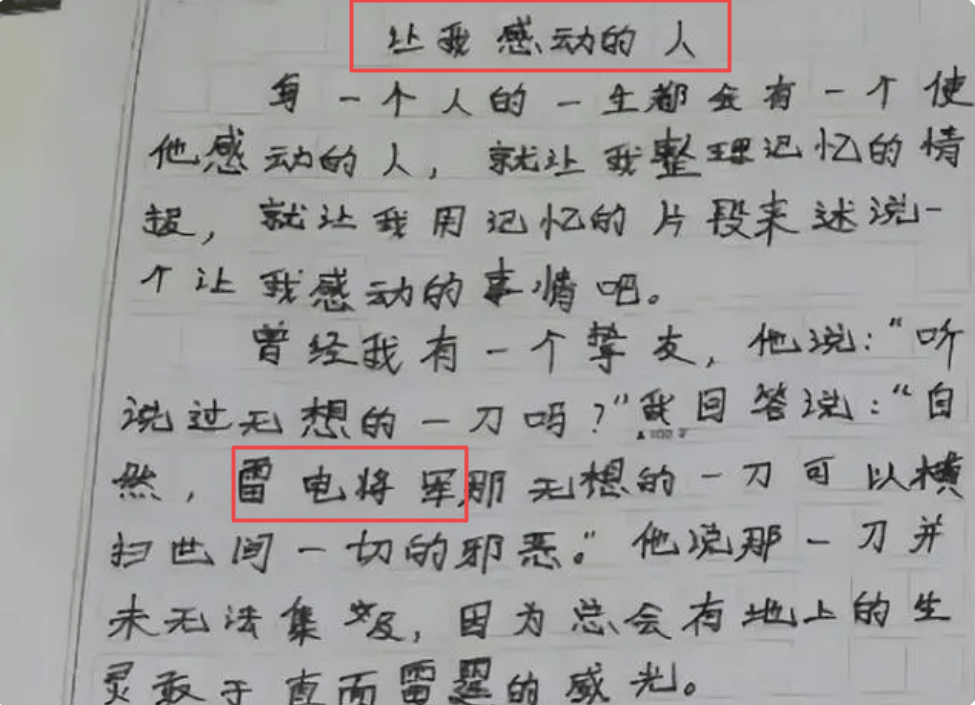 让我感动的人
每一个人的一生都会有一个使
他感动的人，就让我整理记忆的情
超，就让我用记忆的片段来述说一
个让我感动的事情吧。
曾经我有一个挚友，他说：“听
说过无想的一刀吗？”我回答说：“自
然，雷电将军那无想的一刀可以横
扫世间一切的邪恶。”他说那一刀并
未无法集及，因为总会有地上的生
灵敢于直面雷霆的威光。